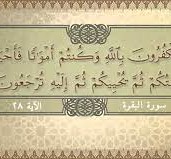 كْفُرُونَ بِٱللَّهِ وَكُنتُمْ أَمْوَٰتًا فَأَحْ
تُكُمْ ثُمَّ يُحْيِيكُمْ ثُمَّ إِلَيْهِ تُرْجَعُونَ
سورة البقرة الآية ٢٨